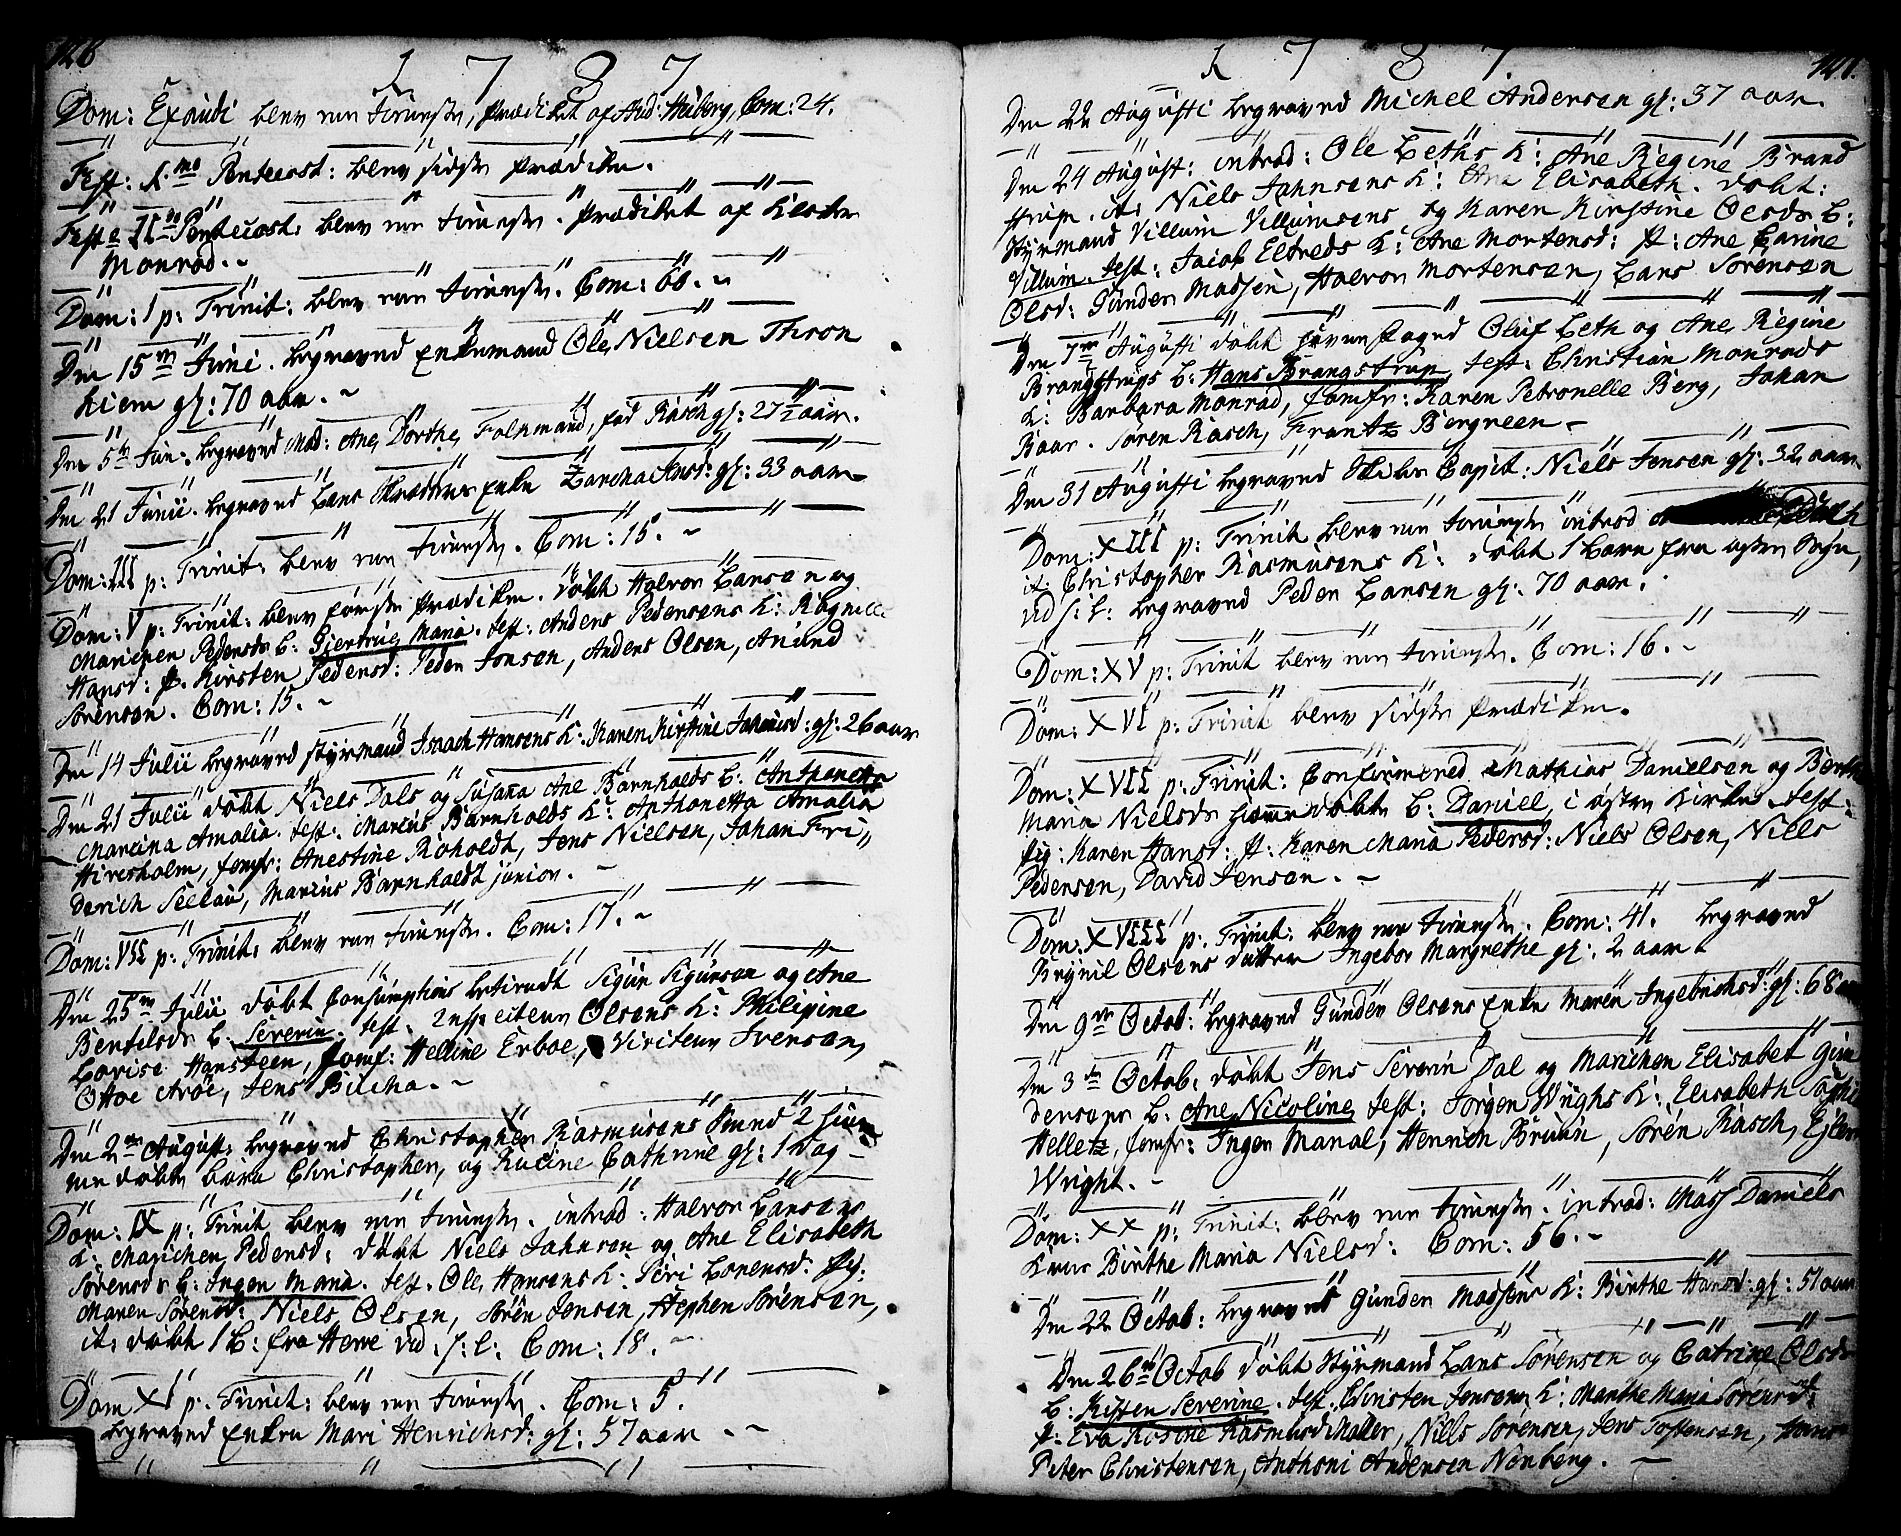 126
1 7 8 7
Dom: Exaudi blev non tieniste, Prædiket af Aud: Huberg, Com: 24.
Fest: I.mo Pentecost: blev sidste Prædiken.
Fest: II Pentecost: blev non tieniste. Prædiket af Kloster
Monrad.
Dom: 1 p: Trinit: blev non tieniste. Com: 66.
Den 15de Juni. begraved Enkemand Ole Nielsen Thron
hiem gl: 70 aar.
Den 5te Juni. begraved Mad: Ane Dorthe Falkmand, fød Rasch gl: 27½ aar.
Den 21 Junii. begraved Lars Enke Zarcha gl: 33 aar
Dom: III p: Trinit: blev non tieniste. Com: 15.
Dom: V p: Trinit: blev første Prædiken. døbt Halvor Larsen og
Marichen Pedersdr B: Giertrue Maria. test: Anders Pedersens K: Ragnille
Hansd: P. Kirsten Pedersd: Peder Jonsen, Anders Olsen, Anund
Sörensen. Com: 15.
Den 14 Julii begraved Styrmand Isaach Hansens K: Karen Kirstine Johansd: gl: 26 aar
Den 21 Julii døbt Niels Dals og Susana Ane Barnholds B: Anthonetta
Marcina Amalia. test: Marcus Barnholds K: Anthonetta Amalia
Hiresholm, Jomfr: Anestine Roholdt, Jens Nielsen, Johan Fri"
derich Seelau, Marcus Barnholdt junior.
Dom: VII p: Trinit: blev non tieniste. Com: 17.
Den 25de Julii døbt Consumptions betiendt Sigur Sigursen og Ane
Bertelsdr B: Severin. test. Inspecteur Olsens K: Philipine
Lovise Hansteen, Jomf: Helline Erboe, Viriteur Ivensen,
Ottoe Aröe, Jens Bucha.
Den 2den August: begraved Christopher Rasmusens Sund 2 hiem
me døbte børn Christopher, og Racine Cathrine gl: 1 Dag
Dom: IX p: Trinit blev non tieniste. introd: Halvor Larsens
K: Marichen Pedersd: døbt Niels Jahnsen og Ane Elisabeth
Sörensdr B: Inger Maria. test. Ole Hansens K: Siri Lorensd: Pig:
Maren Sörensd: Niels Olsen, Sören Jensen, Stephen Sörensen,
it: døbt 1 B: fra Herre ved s: l: Com: 18.
Dom XI p: Trinit: blev non tieniste. Com: 5.
begraved Enken Mari Henrichsd: gl: 57 aar.
127.
1 7 8 7
Den 22 Augusti begraved Michel Andersen gl: 37 aar.
Den 24 August: introd: Ole Leths K: Ane Regine Brand
strup. it: Niels Jahnsens K: Ane Elisabeth. døbt:
Styrmand Villum Villumsens og Karen Kirstine Olsdr B:
Villum. test: Jacob Eltreds K: Ane Mortensd: P: Ane Carine
Olsd: Gunder Madsen, Halvor Mortensen, Lars Sörensen
Den 7de Augusti døbt Oluf Leth og Ane Regine
Brangstrups B: Hans Brangstrup, test: Christian Monrads
K: Barbara Monrad, Jomfr: Karen Petronelle Berg, Johan
Baar. Sören Rasch, Frantz Bergreen
Den 31 Augusti begraved Capit: Niels Jensen gl: 32 aar
Dom: XIII p: Trinit blev non tieniste introd
it: Christopher Rasmusens K: døbt 1 barn fra østre Sogn,
ved s: l: begraved Peder Larsen gl: 70 aar.
Dom: XV p: Trinit blev non tieniste. Com: 16.
Dom: XVI p: Trinit blev sidste Prædiken.
Dom: XVII p: Trinit: Confirmered Mathias Danielsen og Berthe
Maria Nielsdr hiemedøbte B: Daniel, i østre Kirke test:
Pig: Karen Hansd: P: Karen Maria Pedersd: Niels Olsen, Niels
Pedersen, David Jensen.
Dom: XVIII p: Trinit: blev non tieniste. Com: 41. begraved
Brynil Olsens datter Ingebor Margrethe gl: 2 aar
Den 9de Octob: begraved Gunder Olsens Enke Maren Ingebrichsd: gl: 68
Den 3de Octob: døbt Jens Severin Dal og Marichen Elisabet Gun
dersens B: Ane Nicoline, test: Jörgen Wrighs K: Elisabeth Sophie
Helletz, Jomfr: Inger Manal, Henrich Bruun, Sören Rasch, Ejler
Wright.
Dom: XX p: Trinit: blev non tieniste. introd: Mads Daniels
Kone Birthe Maria Nielsd: Com: 56.
Den 22 Octob: begraved Gunder Madsens K: Birthe Hansd: gl: 51 aar
Den 26de Octob døbt Styrmand Lars Sörensen og Catrine Olsdr
B: Kisten Severine. test: Christen Jensens K: Marthe Maria Sörensd:
P: Eva Rosine Rasmusd Møller, Niels Sörensen, Jens Tostensen, Hans
Peter Christensen, Anthoni Andersen Nörberg.